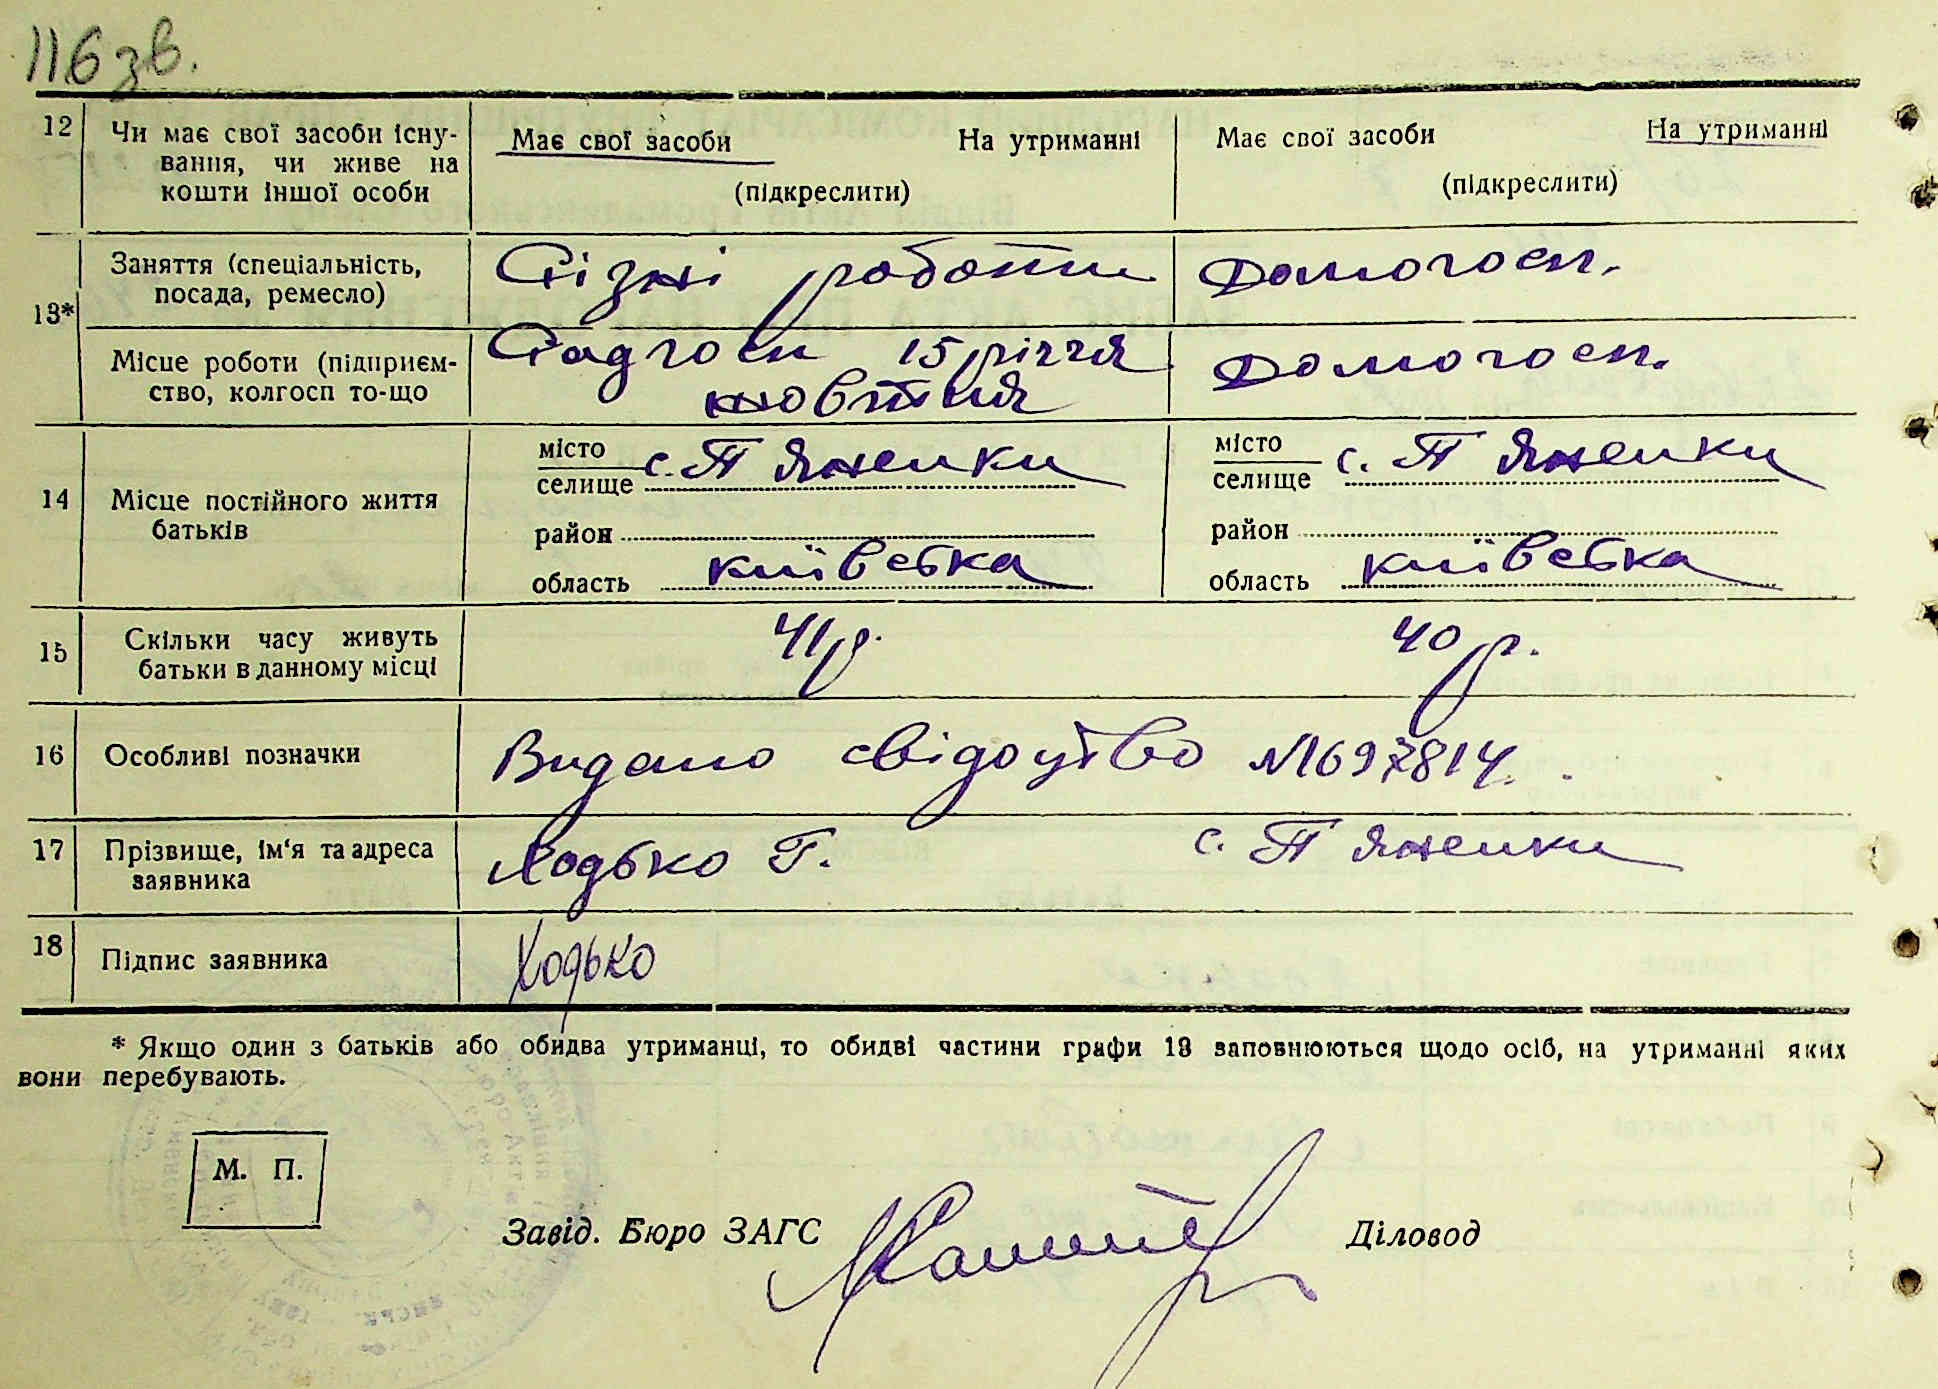 116 зв.
12 Чи має свої засоби існу- Має свої засоби На утриманні Має свої засоби На утриманні
вання, чи живе на
кошти іншої особи (підкреслити) (підкреслити)
13* Заняття (спеціальність, Різні роботи Домогосп.
посада, ремесло)
Місце роботи (підприєм- Радгосп 15 річчя Домогосп.
ство, колгосп то-що жовтня
14 Місце постійного життя
батьків
місто с. П'яненки місто с. П'яненки
селище селище
район район
область київська область київська
15 Скільки часу живуть 41 р. 40 р.
батьки в данному місці
16 Особливі позначки Видано свідоцтво №1697814.
17 Прізвище, ім'я та адреса Ходько Г. с. П'яненки
заявника
18 Підпис заявника Ходько
* Якщо один з батьків або обидва утриманці, то обидві частини графи 13 заповнюються щодо осіб, на утриманні яких
вони перебувають.
М. П.
Завід. Бюро ЗАГС Діловод